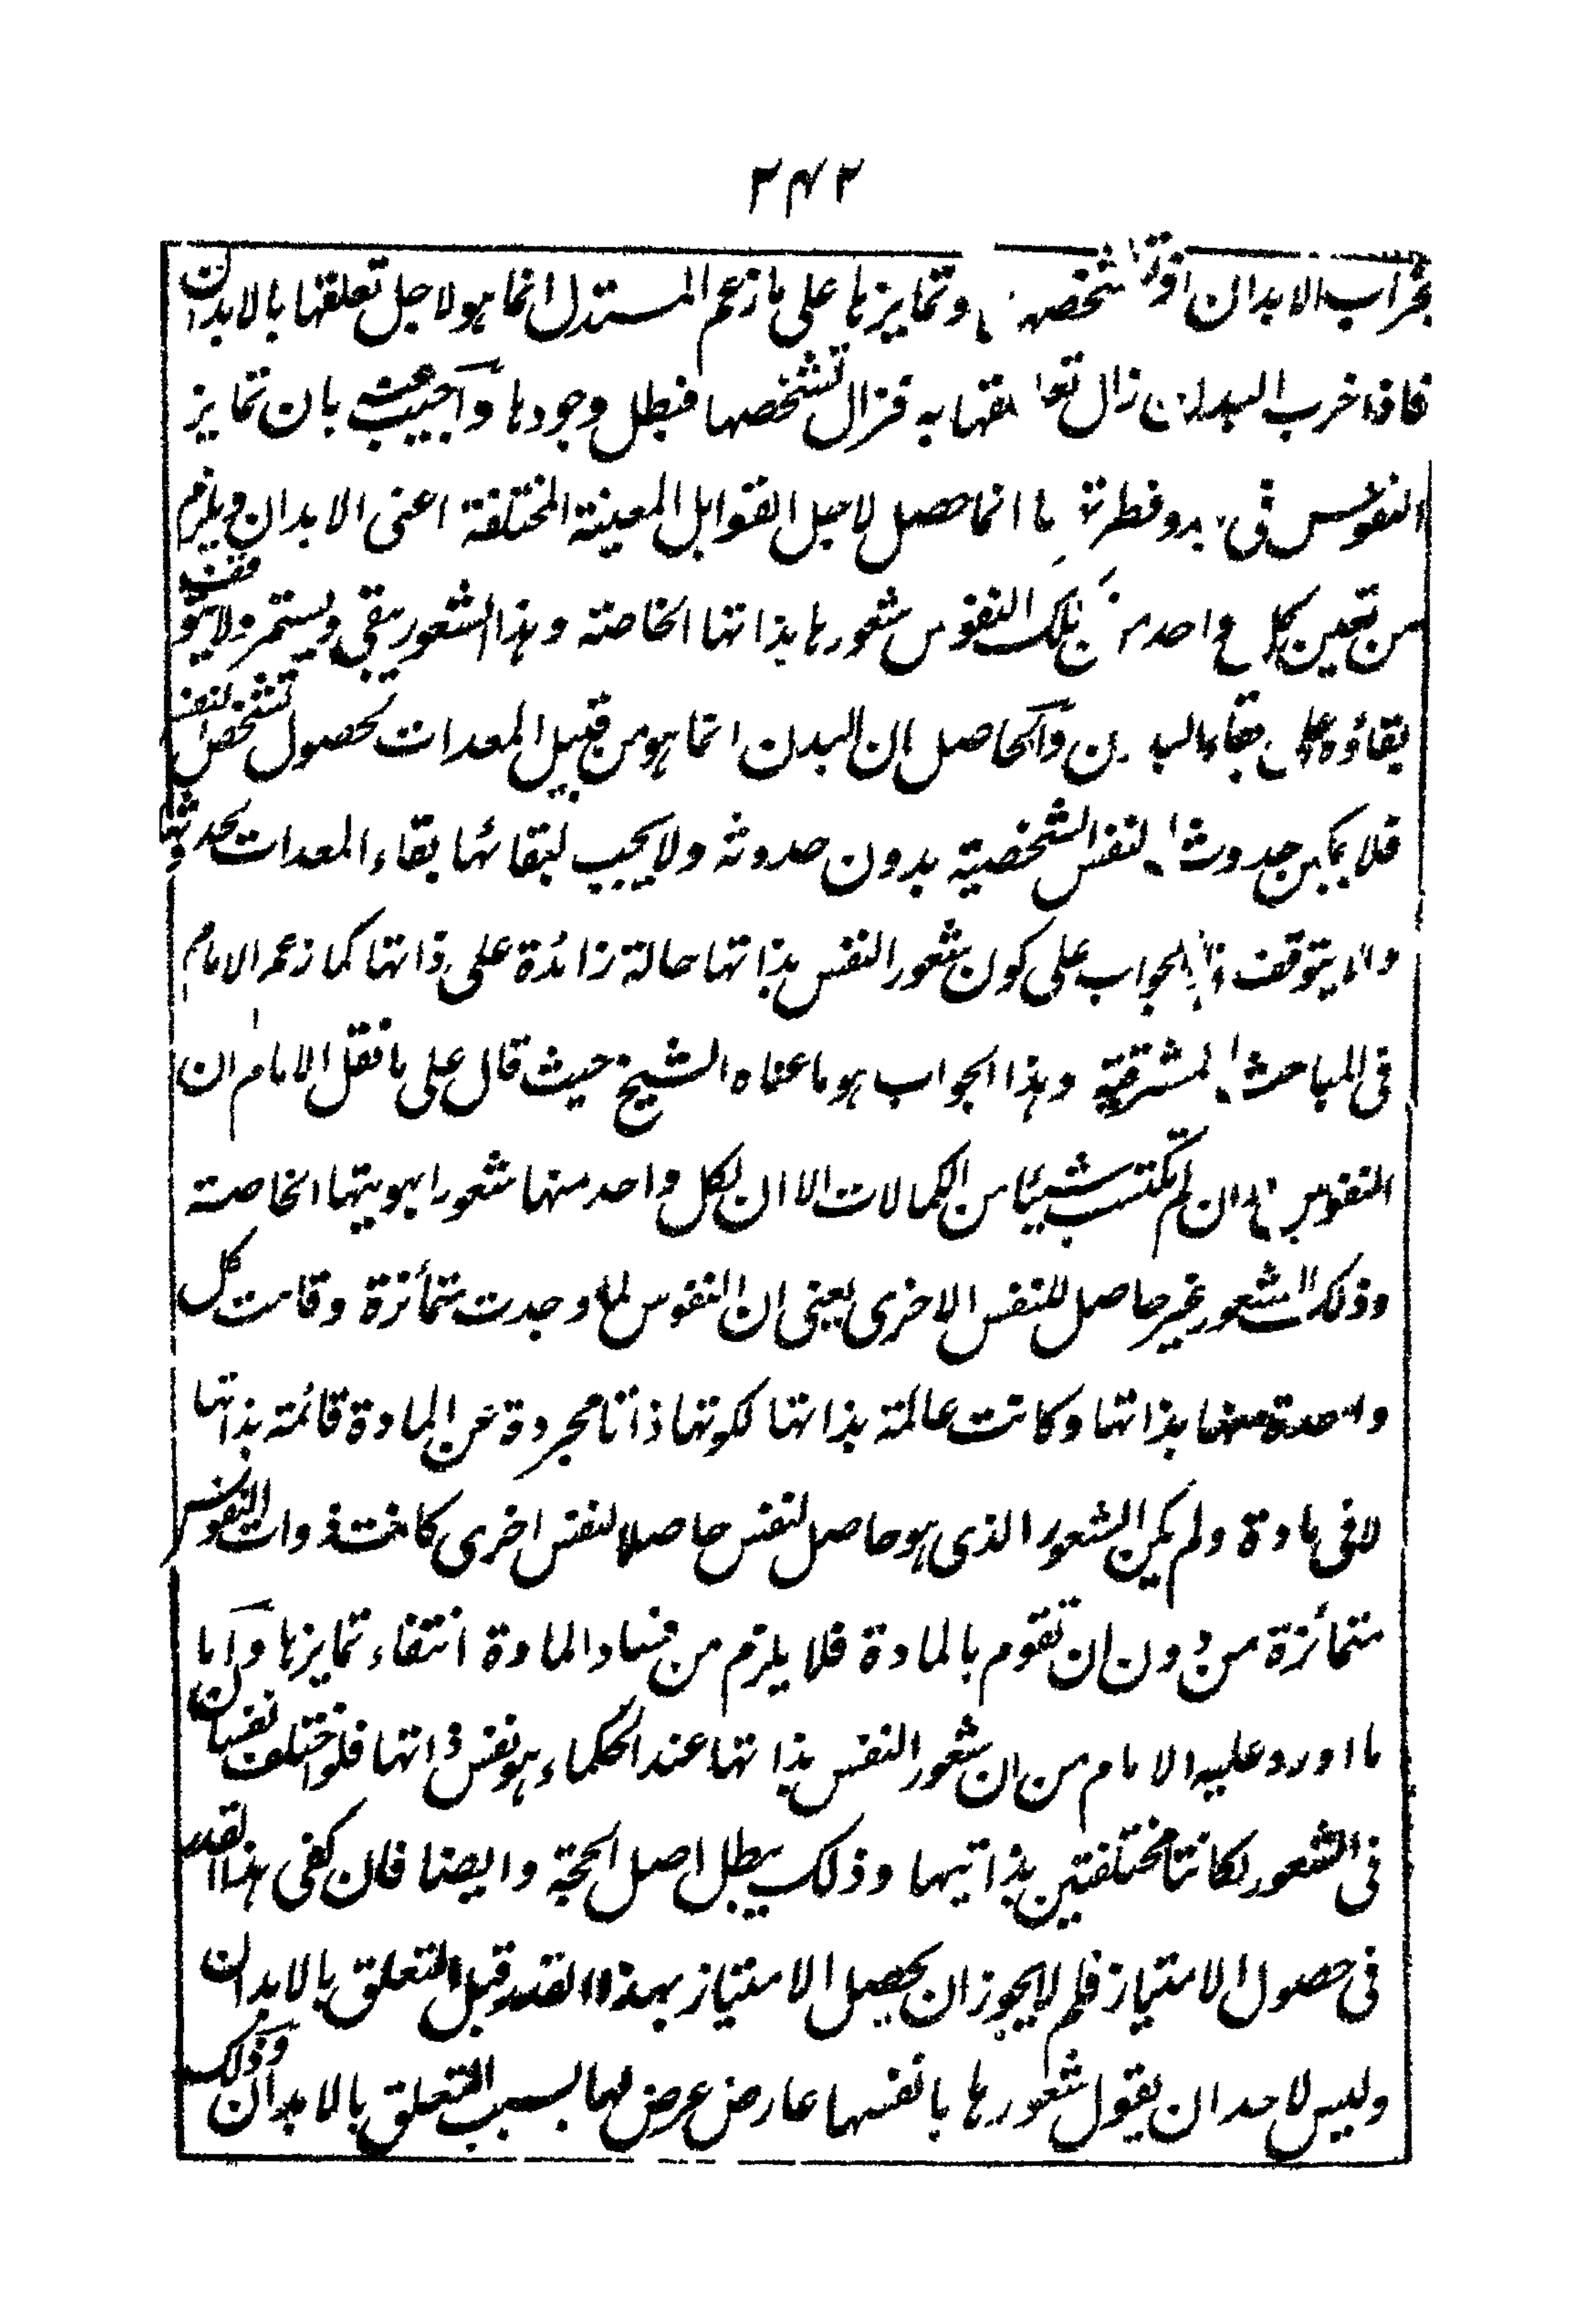 ٢٤٢
بخراب الابدان اذ تشخصها وتمايزها على ما زعم المستدل انما هو لاجل تعلقها بالابدان
فاذا خرب البدن زال تعلقها به فزال تشخصها فبطل وجودها واجيب عنه بان تمايز
النفوس فى بدو فطرتها انما حصل لاجل القوابل المعينة المختلفة اعنى الابدان ويلزم
من تعين كل واحد من تلك النفوس شعورها بذاتها الخاصة وهذا الشعور يبقى ويستمر ولا يتوقف
بقاؤه على بقاء البدن والحاصل ان البدن انما هو من قبيل المعدات لحصول تشخص النفس
فلا يمكن حدوث النفس الشخصية بدون حدوثه ولا يجب لبقائها بقاء المعدات لحدوثها
ولا يتوقف الجواب على كون شعور النفس بذاتها حالة زائدة على ذاتها كما زعم الامام
فى المباحث المشرقية وهذا الجواب هو ما عناه الشيخ حيث قال على ما نقل الامام ان
النفوس وان لم تكتسب شيئا من الكمالات الا ان لكل واحد منها شعورا بهويتها الخاصة
وذلك الشعور غير حاصل للنفس الاخرى يعنى ان النفوس لما وجدت متمائزة وقامت كل
واحدة منها بذاتها وكانت عالمة بذاتها لكونها ذاتا مجردة عن المادة قائمة بذاتها
لا فى مادة ولم يكن الشعور الذى هو حاصل لنفس حاصلا لنفس اخرى كانت ذوات النفوس
متمائزة من دون ان تقوم بالمادة فلا يلزم من فساد المادة انتفاء تمايزها واما
ما اورد عليه الامام من ان شعور النفس بذاتها عند الحكماء هو نفس ذاتها فلو اختلف نفسان
فى الشعور لكانتا مختلفتين بذاتيهما وذلك يبطل اصل الحجة وايضا فان كفى هذا القدر
فى حصول الامتياز فلم لا يجوز ان يحصل الامتياز بهذا القدر قبل التعلق بالابدان
وليس لاحد ان يقول شعورها بانفسها عارض عرض لها بسبب التعلق بالابدان وذلك